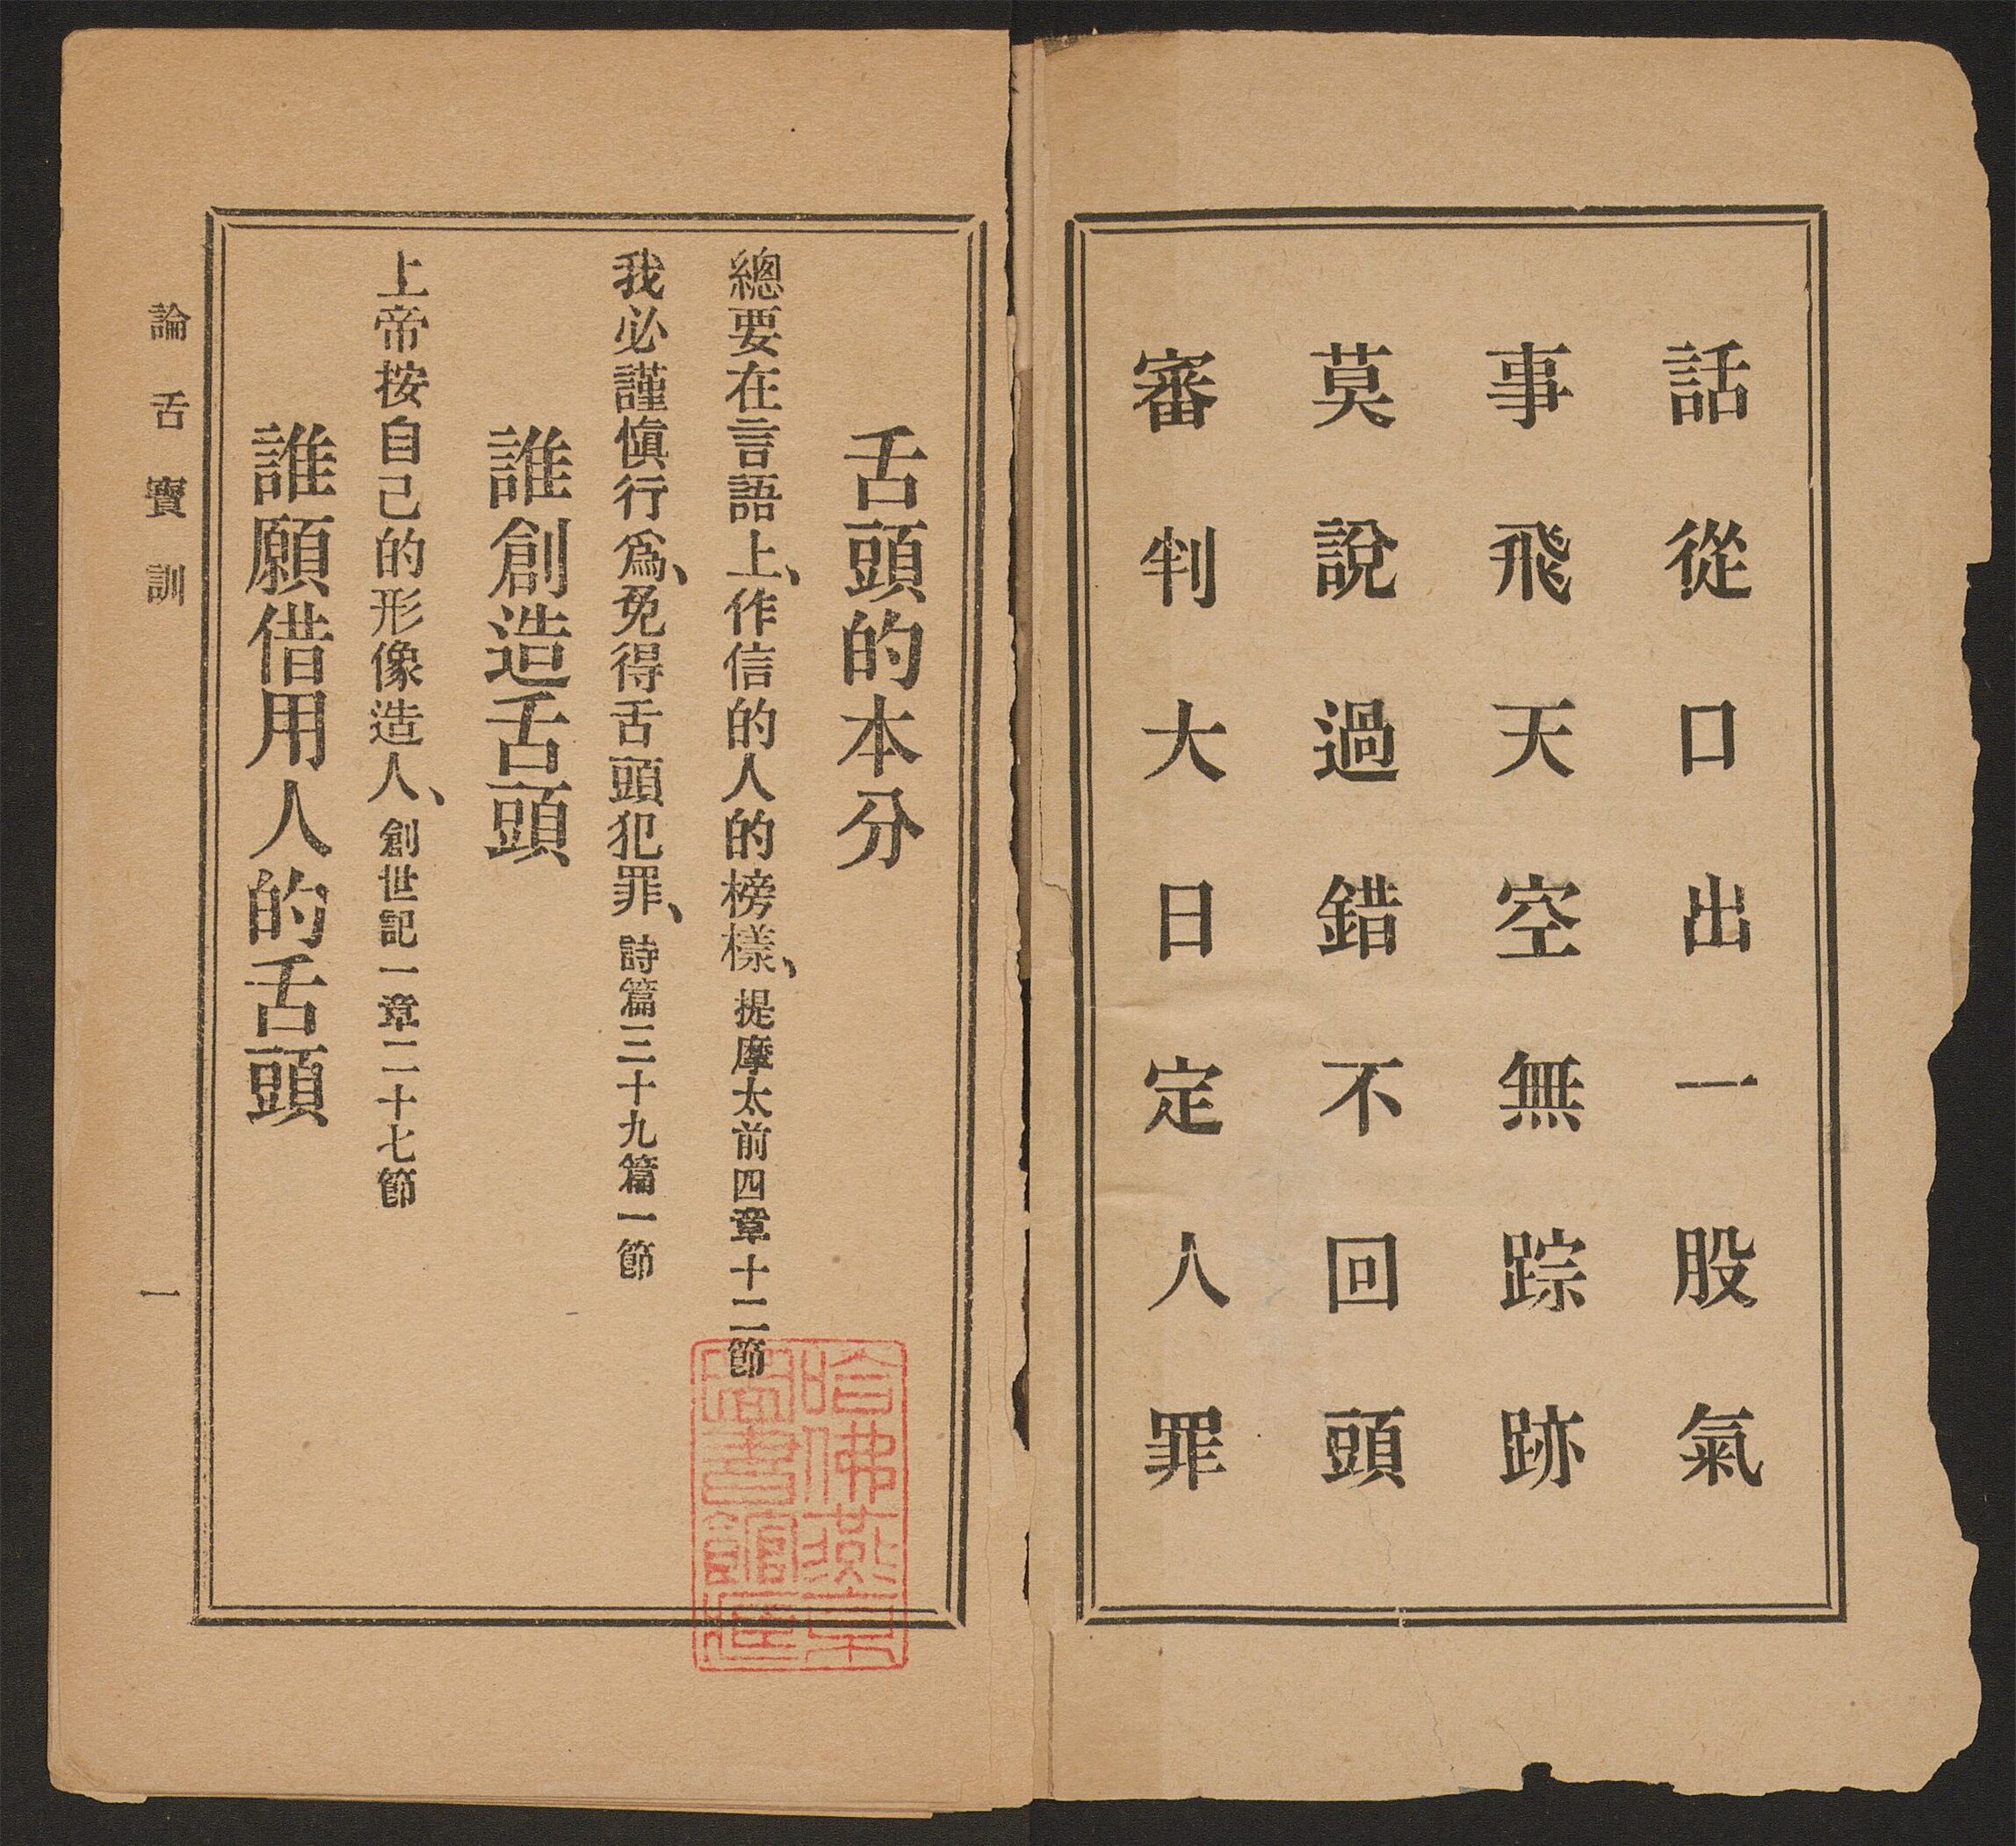 話從口出一股氣
事飛天空無踪跡
莫說過錯不回頭
審判大日定人罪
舌頭的本分
總要在言語上、作信的人的榜樣、提摩太前四章十二節
我必謹慎行爲、免得舌頭犯罪、詩篇三十九篇一節
誰創造舌頭
上帝按自己的形像造人、創世記一章二十七節
誰願借用人的舌頭
論舌寶訓
一
哈佛燕京
圖書館藏